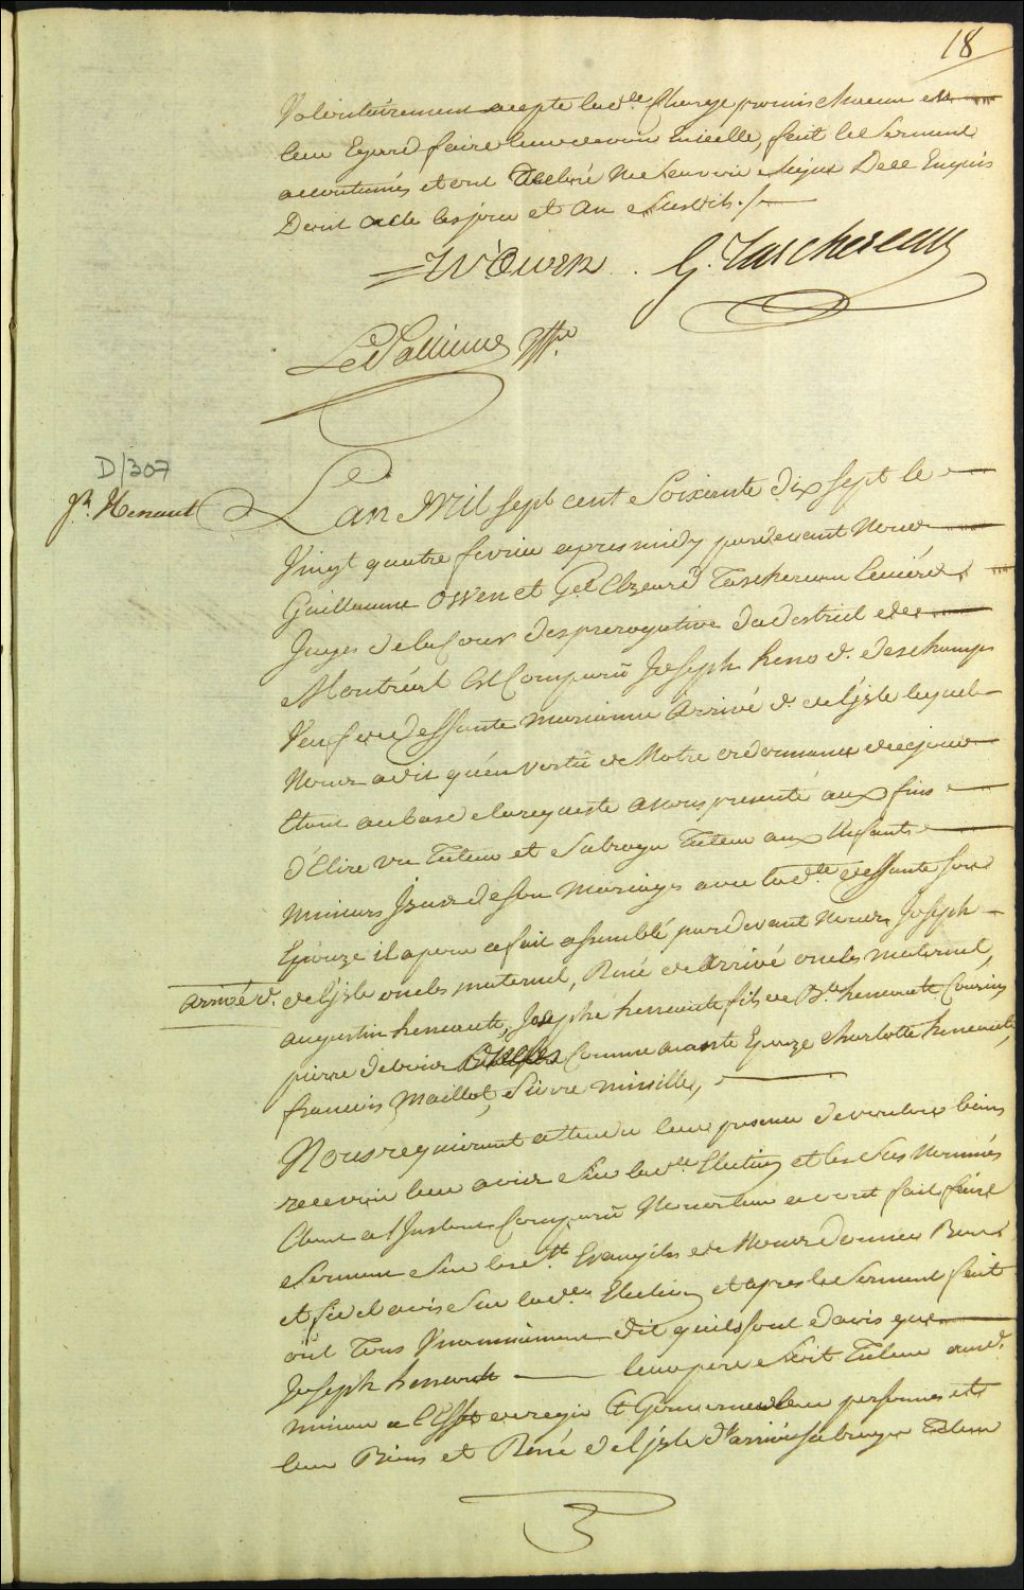 18
Volontairement accepté lad.te Charge promis chacun en
leur Egard faire leur devoir en icelle, fait le Serment
accoutumés et ont declaré ne scavoir Signer De ce Enquis
Dont acte les jour et an Susdits ./.
W Owen . G. Taschereau
LePallieur Gffr.
D/307
Jh. Henaut
L'an Mil sept cent Soixante dix sept le
Vingt quatre fevrier apres midy pardevant Nous
Guillaume Owen et G.el Elzeard Taschereau Ecuiers
Juges de la Cour des prerogative du destrict de
Montréal Est Comparû Joseph heno d. deschamps
Veuf de deffunte Marianne Arrivé d. delisle lequel
Nous a dit qu'en vertû de Notre ordonnance de ce jour
Etant au bas de la requeste a Nous presenté aux fins
d'Elire un Tuteur et Subrogé Tuteur aux Enfants
mineurs Issus de son Mariage avec lad.te deffunte son
Epouze il a pour ce fait assemblé pardevant Nous Joseph
arrivé d. delisle oncle maternel, René de Arrivé oncle maternel,
augustin henaute, Joseph henaute fils de henaute Cousins
pierre Comme aiante Epouze charlotte henaute,
francois Maillot,
Nous requierant attendu leur presence de vouloir bien
recevoir leur avis Sur lad.te Election et les Sus Nommés
Etant a l'Instant Comparû Nous leur avons fait faire
Serment Sur les S.ts Evangiles de Nous donner Bon
et fidel avis Sur lad.te Election et apres le Serment fait
ont Tous Unanimement dit qu'ils sont d'avis que
Joseph henaut leur pere Soit Tuteur aud.
mineur a l'Effet de regir Et Gouverner leur personnes et
leur Biens et René delisle d. arrivé Subrogé Tuteur